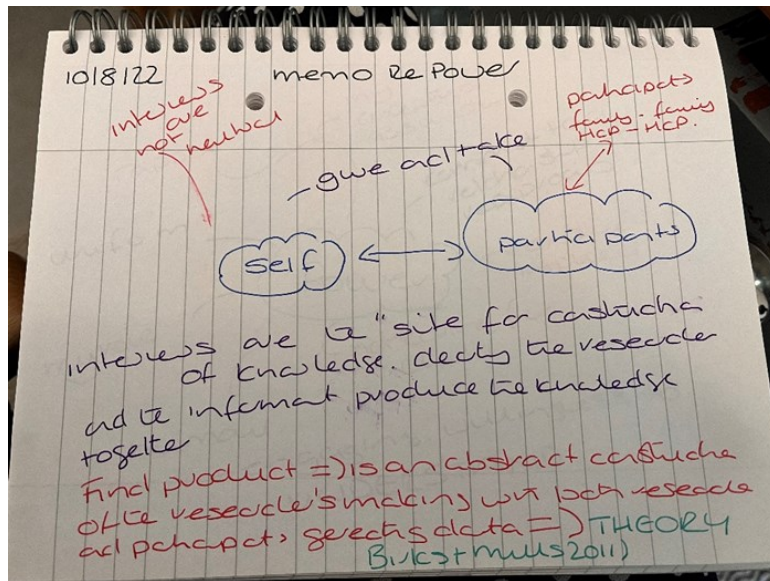 10/8/22 memo Re Power
interviews
are
not
neutral
participants
family - family
HCP - HCP.
give and take
self
participants
interviews are the "site for construction
of knowledge. clearly the researcher
and the informant produce the knowledge
together
Final product => is an abstract construction
of the researcher's making with both researcher
and participants generating data => THEORY
Birks + Mills 2011)